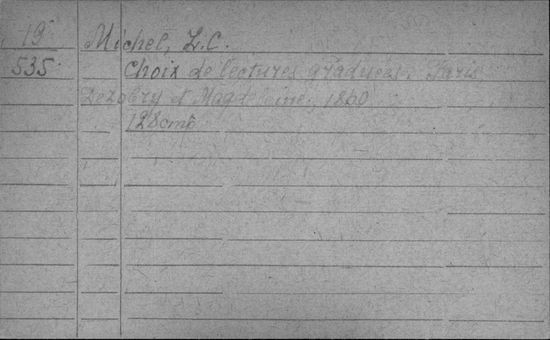 19 Michel, L.C.
535. Choix de lectures graduées. Paris
Dezobry et Magdeleine, 1860
128cm8